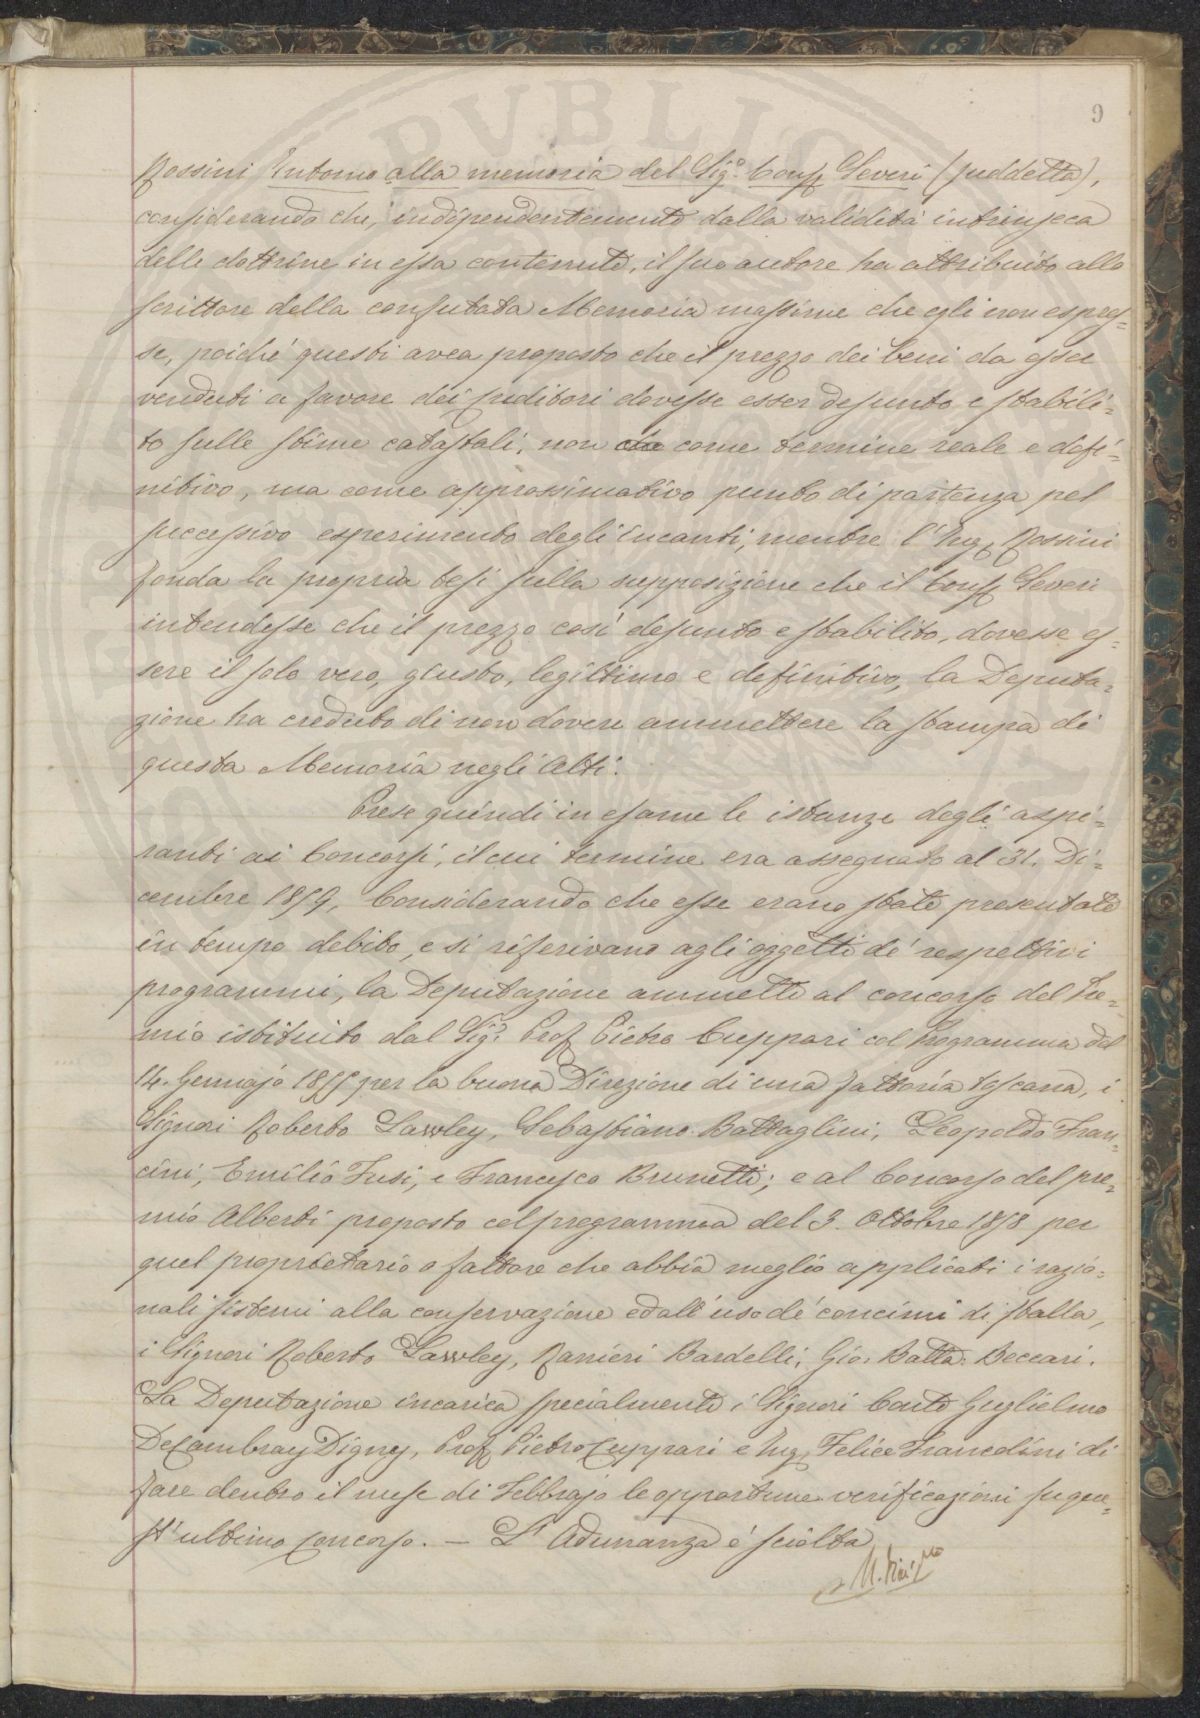 9
Rossini Intorno alla memoria del Sig.e Cons.r Severi (suddetta),
considerando che, indipendentemente dalla validità intrinseca
delle dottrine in essa contenute, il suo autore ha attribuito allo
scrittore della confutata Memoria massime che egli non espres=
se, poiché questi avea proposto che il prezzo dei beni da esser
venduti a favore dei creditori dovesse esser desunto e stabili=
to sulle stime catastali, non come termine reale e defi=
nitivo, ma come approssimativo punto di partenza pel
successivo esperimento degli incanti, mentre l'Ing.r Rossini
fonda la propria tesi sulla supposizione che il Cons.r Severi
intendesse che il prezzo così desunto e stabilito, dovesse es=
sere il solo vero, giusto, legittimo e definitivo, la Deputa=
zione ha creduto di non dovere ammettere la stampa di
questa Memoria negli Atti.
Prese quindi in esame le istanze degli aspi=
ranti ai Concorsi, il cui termine era assegnato al 31. Di=
cembre 1859, Considerando che esse erano state presentate
in tempo debito, e si riferivano agli oggetti de' respettivi
programmi, la Deputazione ammette al concorso del Pre=
mio istituito dal Sig.r Prof.r Pietro Cuppari col Programma del
14. Gennajo 1855 per la buona Direzione di una fattoria toscana, i
Signori Roberto Lawley, Sebastiano Battaglini, Leopoldo Fran=
cini, Emilio Fusi, e Francesco Brunetti; e al Concorso del pre=
mio Alberti proposto col programma del 3. Ottobre 1858 per
quel proprietario o fattore che abbia meglio applicati i razio=
nali sistemi alla conservazione ed all'uso de' concimi di stalla,
i Signori Roberto Lawley, Ranieri Bardelli, Gio. Batta. Beccari.
La Deputazione incarica specialmente i Signori Conte Guglielmo
De Cambray Digny, Prof.r Pietro Cuppari e Ing.r Felice Francolini di
fare dentro il mese di Febbrajo le opportune verificazioni su que=
st'ultimo concorso. — L'Adunanza è sciolta